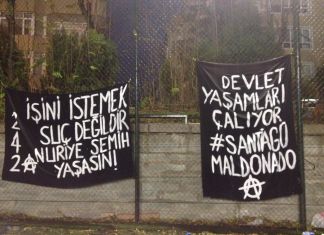 242
İŞİNİ İSTEMEK
SUÇ DEĞİLDİR
NURİYE SEMİH
YAŞASIN!
DEVLET
YAŞAMLARI
ÇALIYOR
#SANTİAGO
MALDONADO